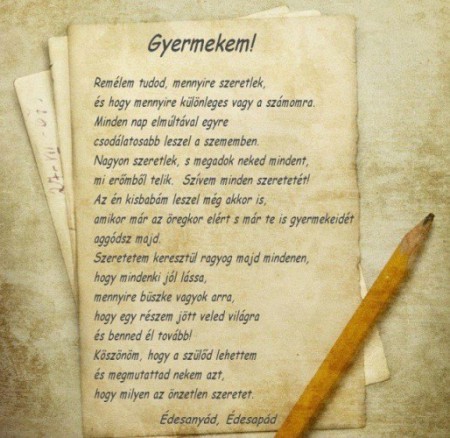 Gyermekem!
Remélem tudod, mennyire szeretlek,
és hogy mennyire különleges vagy a számomra.
Minden nap elmúltával egyre
csodálatosabb leszel a szememben.
Nagyon szeretlek, s megadok neked mindent,
mi erőmből telik. Szívem minden szeretetét!
Az én kisbabám leszel még akkor is,
amikor már az öregkor elért s már te is gyermekeidét
aggódsz majd.
Szeretetem keresztül ragyog majd mindenen,
hogy mindenki jól lássa,
mennyire büszke vagyok arra,
hogy egy részem jött veled világra
és benned él tovább!
Köszönöm, hogy a szülőd lehettem
és megmutattad nekem azt,
hogy milyen az önzetlen szeretet.
Édesanyád, Édesapád